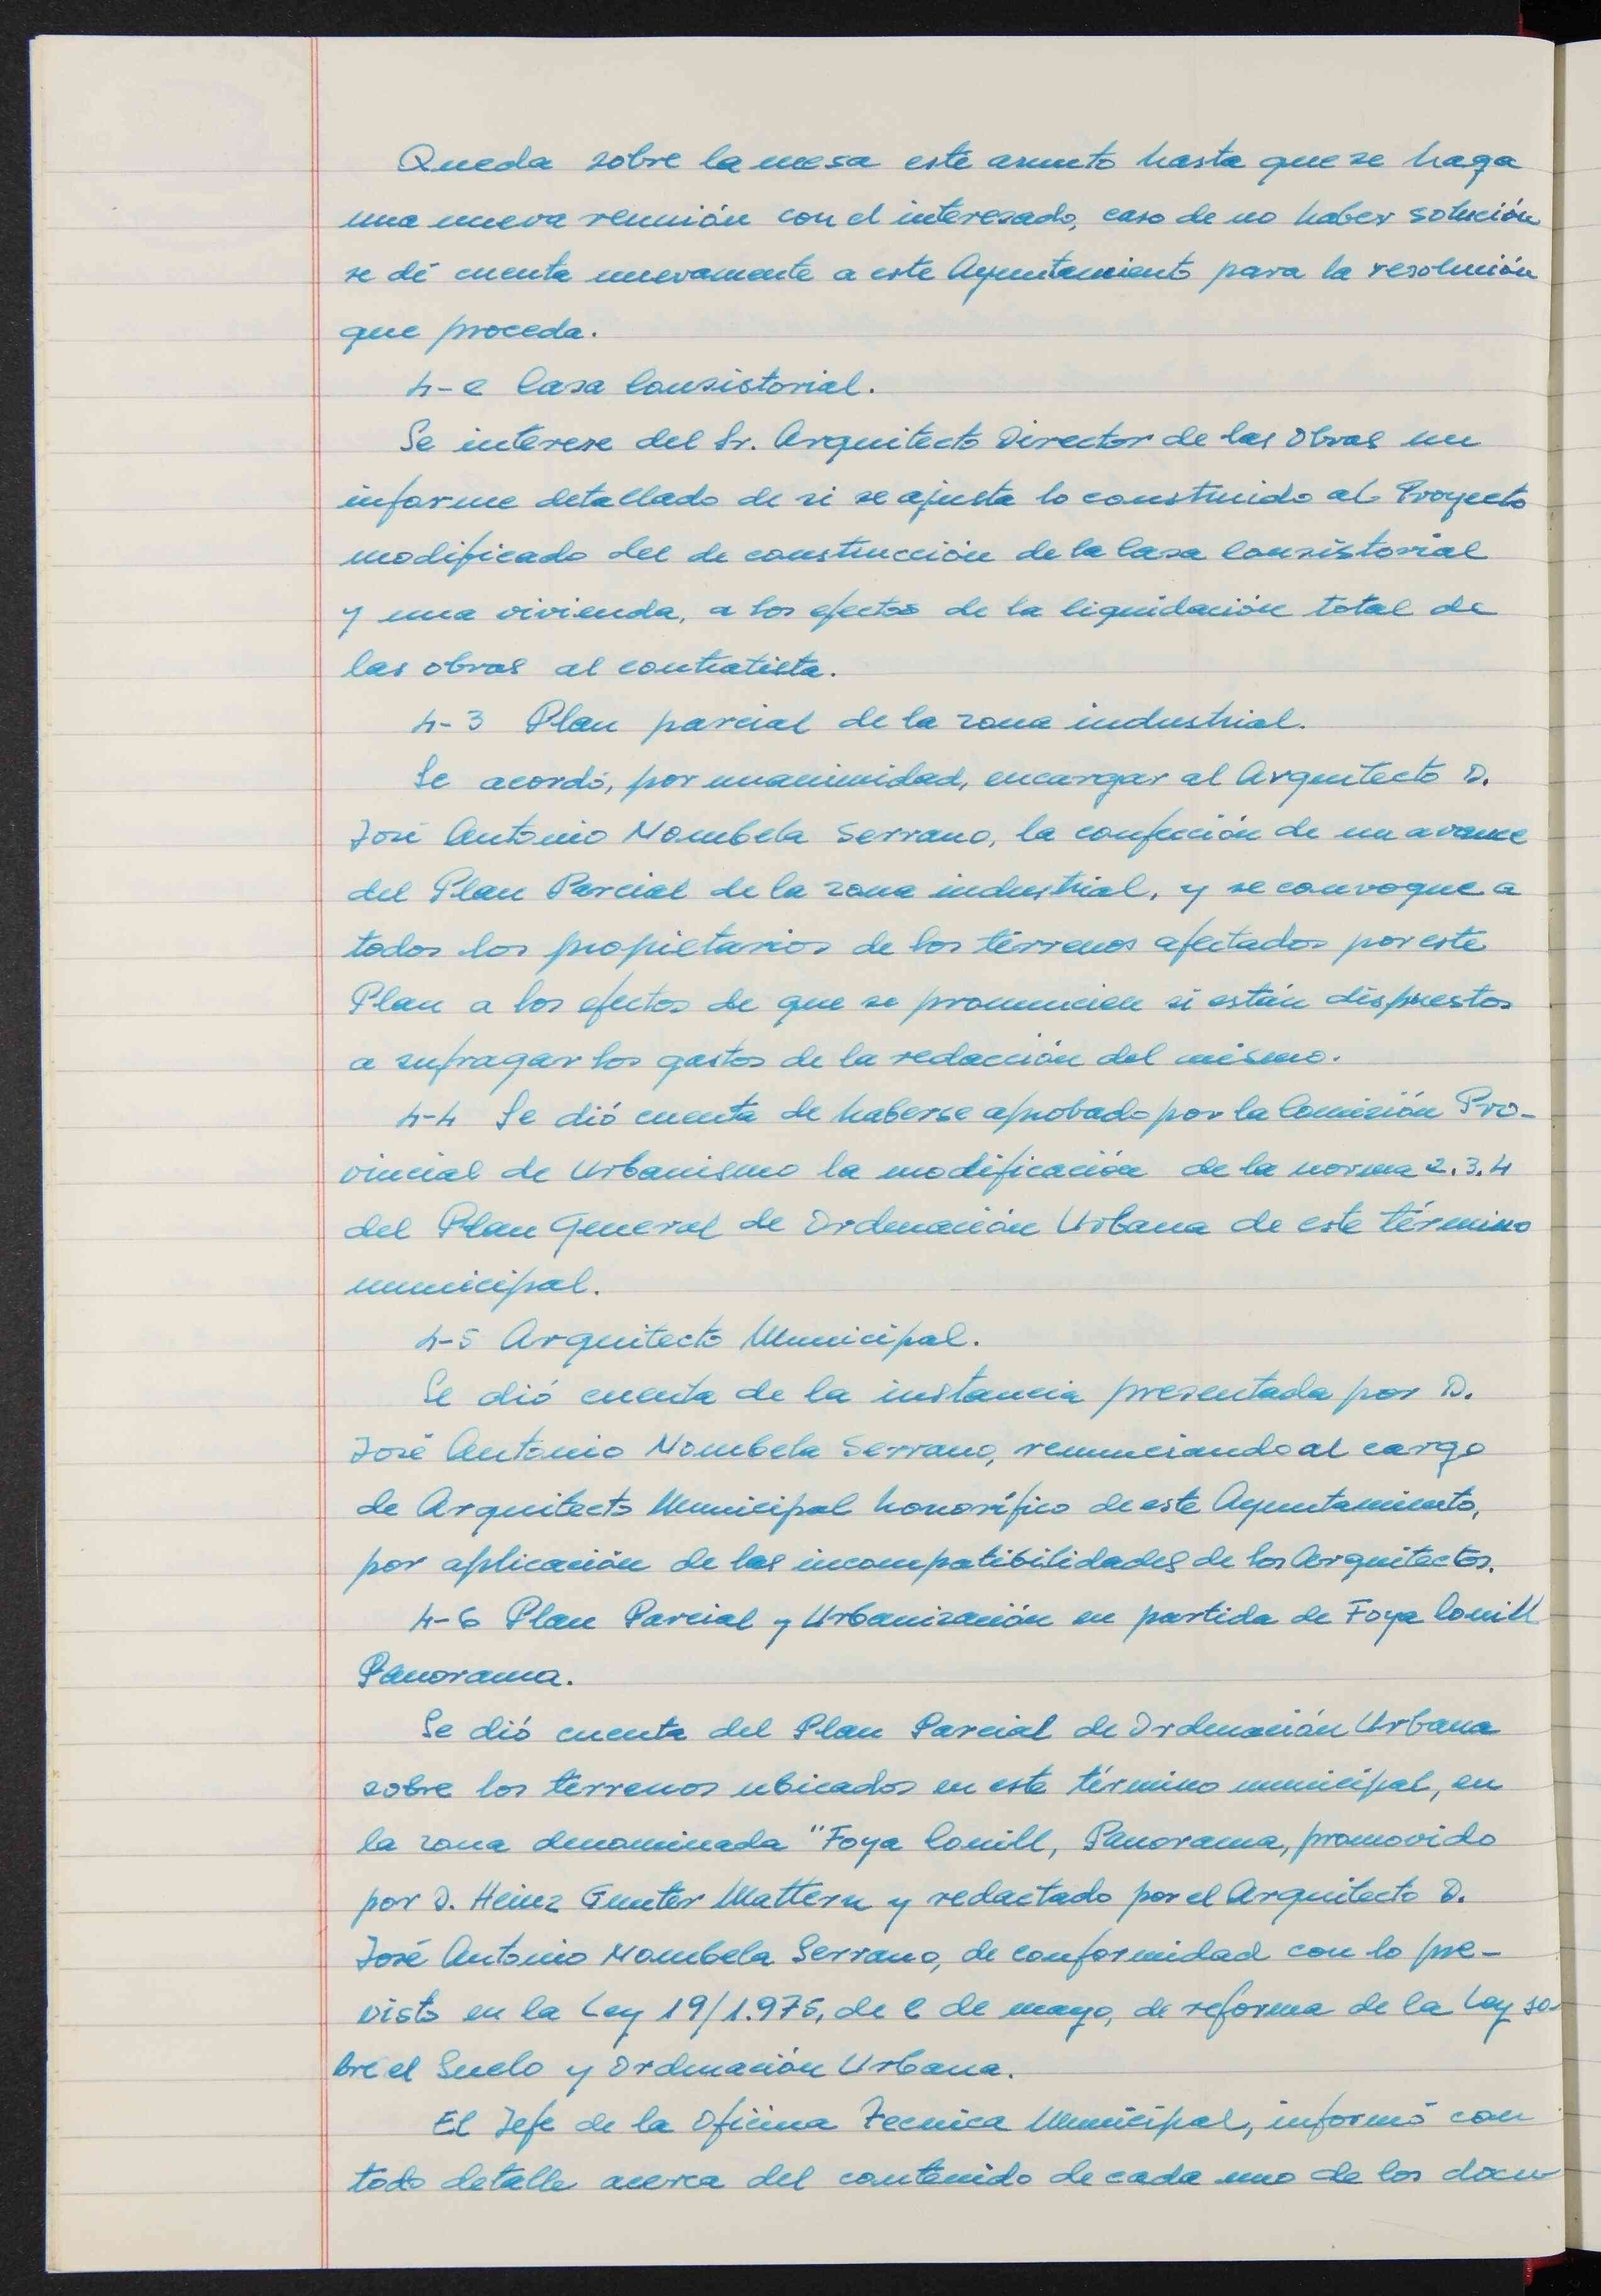 Queda sobre la mesa este asunto hasta que se haga
una nueva reunión con el interesado, caso de no haber solución
se dé cuenta nuevamente a este Ayuntamiento para la resolución
que proceda.
4-2 Casa Consistorial.
Se interese del Sr. Arquitecto Director de las Obras un
informe detallado de si se ajusta lo construido al Proyecto
modificado del de construcción de la Casa Consistorial
y una vivienda, a los efectos de la liquidación total de
las obras al contratista.
4-3 Plan parcial de la zona industrial.
Se acordó, por unanimidad, encargar al Arquitecto D.
José Antonio Nombela Serrano, la confección de un avance
del Plan Parcial de la zona industrial, y se convoque a
todos los propietarios de los terrenos afectados por este
Plan a los efectos de que se pronuncien si están dispuestos
a sufragar los gastos de la redacción del mismo.
4-4 Se dió cuenta de haberse aprobado por la Comisión Pro-
vincial de Urbanismo la modificación de la norma 2.3.4
del Plan General de Ordenación Urbana de este término
municipal.
4-5 Arquitecto Municipal.
Se dió cuenta de la instancia presentada por D.
José Antonio Nombela Serrano, renunciando al cargo
de Arquitecto Municipal honorífico de este Ayuntamiento,
por aplicación de las incompatibilidades de los Arquitectos.
4-6 Plan Parcial y Urbanización en partida de Foya Conill
Panorama.
Se dió cuenta del Plan Parcial de Ordenación Urbana
sobre los terrenos ubicados en este término municipal, en
la zona denominada "Foya Conill, Panorama, promovido
por D. Heinz Gunter Mattern y redactado por el Arquitecto D.
José Antonio Nombela Serrano, de conformidad con lo pre-
visto en la Ley 19/1.975, de 2 de mayo, de reforma de la Ley so-
bre el Suelo y Ordenación Urbana.
El Jefe de la Oficina Tecnica Municipal, informó con
todo detalle acerca del contenido de cada uno de los docu-